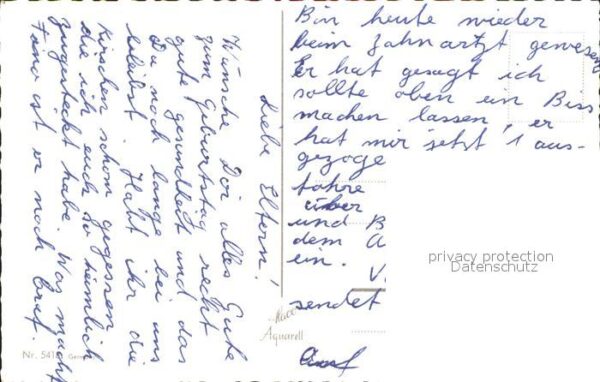 Liebe Eltern!
Wünsche Dir alles Gute
zum Geburtstag recht
gute gesundheit und das
Du noch lange bei uns
bleibst. Habt ihr die
Kirschen schom gegessen
die ich euch so heimlich
zugesteckt habe. Was macht
Fano ist er noch braf.
Bin heute wieder
beim Zahnartzt gewesen
Er hat gesagt ich
sollte oben ein Biss
machen lassen, er
hat mir jetzt 1 aus-
gezoge
fahre
über
und B
dem A
ein.
V
sendet
privacy protection
Datenschutz
Aquarell
Nr. 541